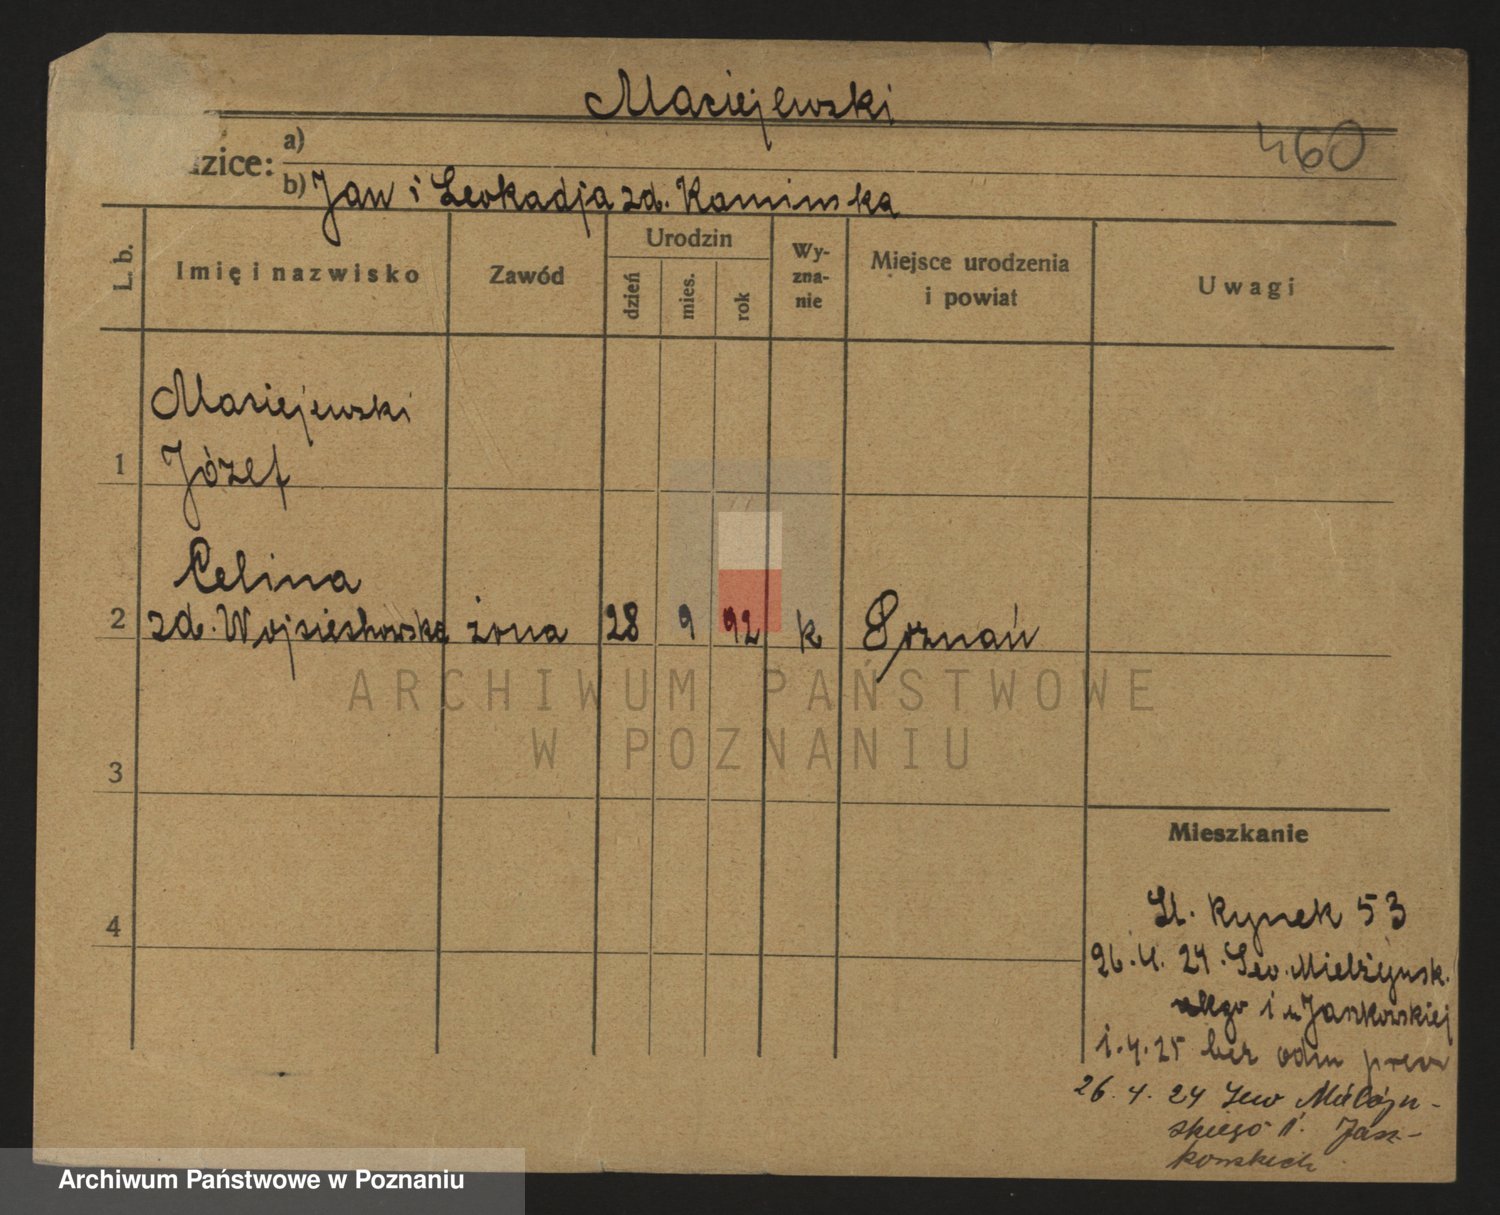 Maciejewski
460
a)
zice:
b) Jan i Leokadja zd. Kaminska
L. b.
Imię i nazwisko
Zawód
Urodzin
dzień
mies.
rok
Wy-
zna-
nie
Miejsce urodzenia
i powiat
Uwagi
Maciejewski
1 Józef
Celina
2 zd. Wojciechowska żona 28 9 92 k Poznań
ARCHIWUM PAŃSTWOWE
W POZNANIU
3
Mieszkanie
4
St. Rynek 53
26.4.24. Sew. Mielżyńsk.
i Jaszkowskiej
1.4.25 bez odm
26.4.24 Sew
skiego i Jasz-
kowskich
Archiwum Państwowe w Poznaniu